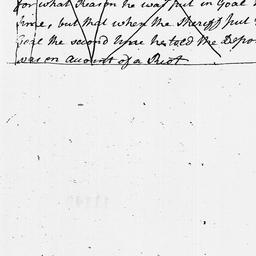 for what Reason he was put in Goal
time, but that when the Sheriff put
Goal the second time he told the Depo
was on Account of a Riot